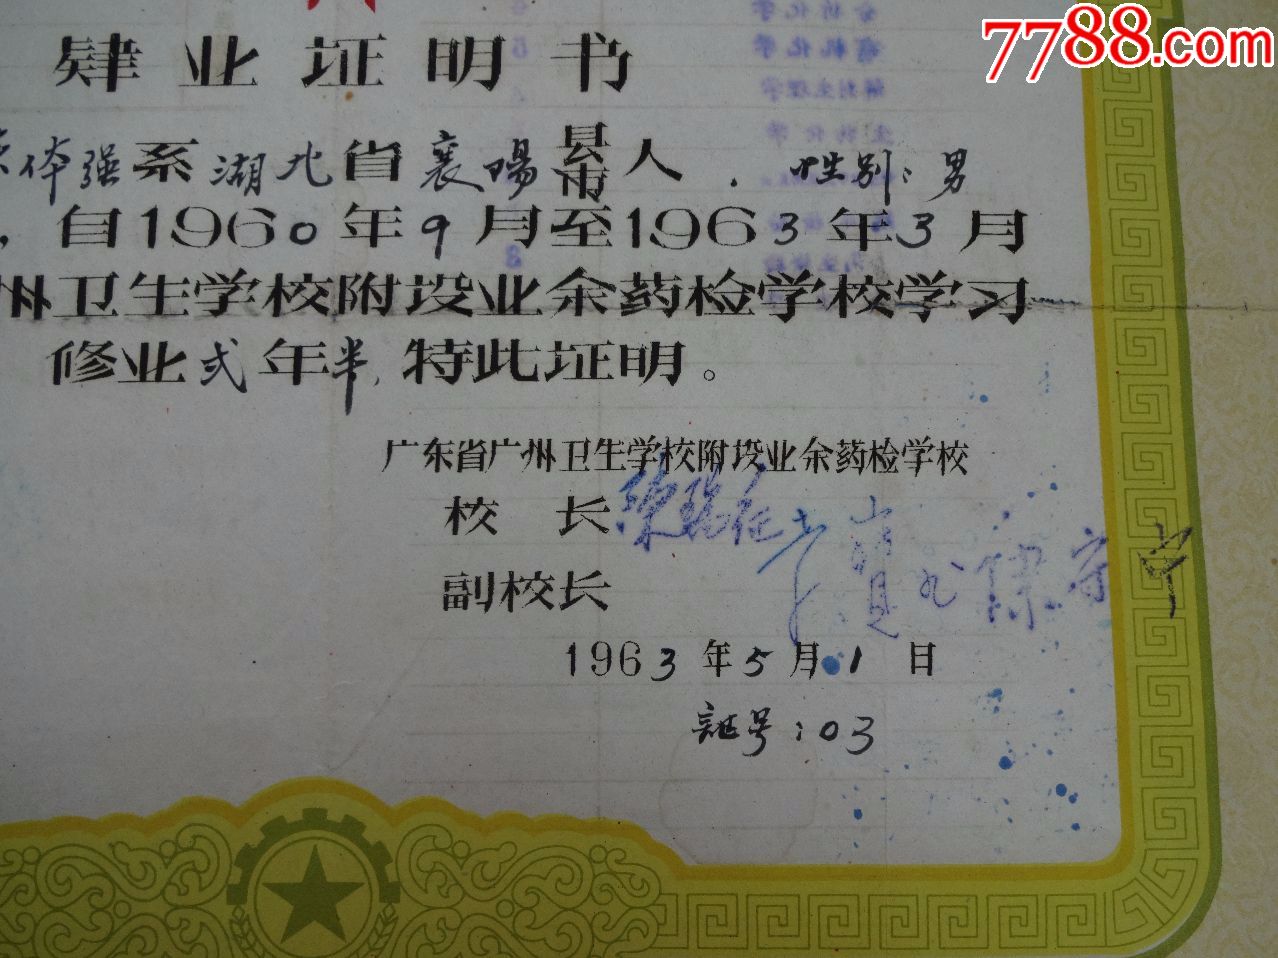 7788.com
肄业证明书
体强系湖北省襄陽县市人，性别：男
，自1960年9月至1963年3月
州卫生学校附设业余药检学校学习
修业弍年半，特此证明。
广东省广州卫生学校附设业余药检学校
校长
副校长
1963年5月1日
证号：03